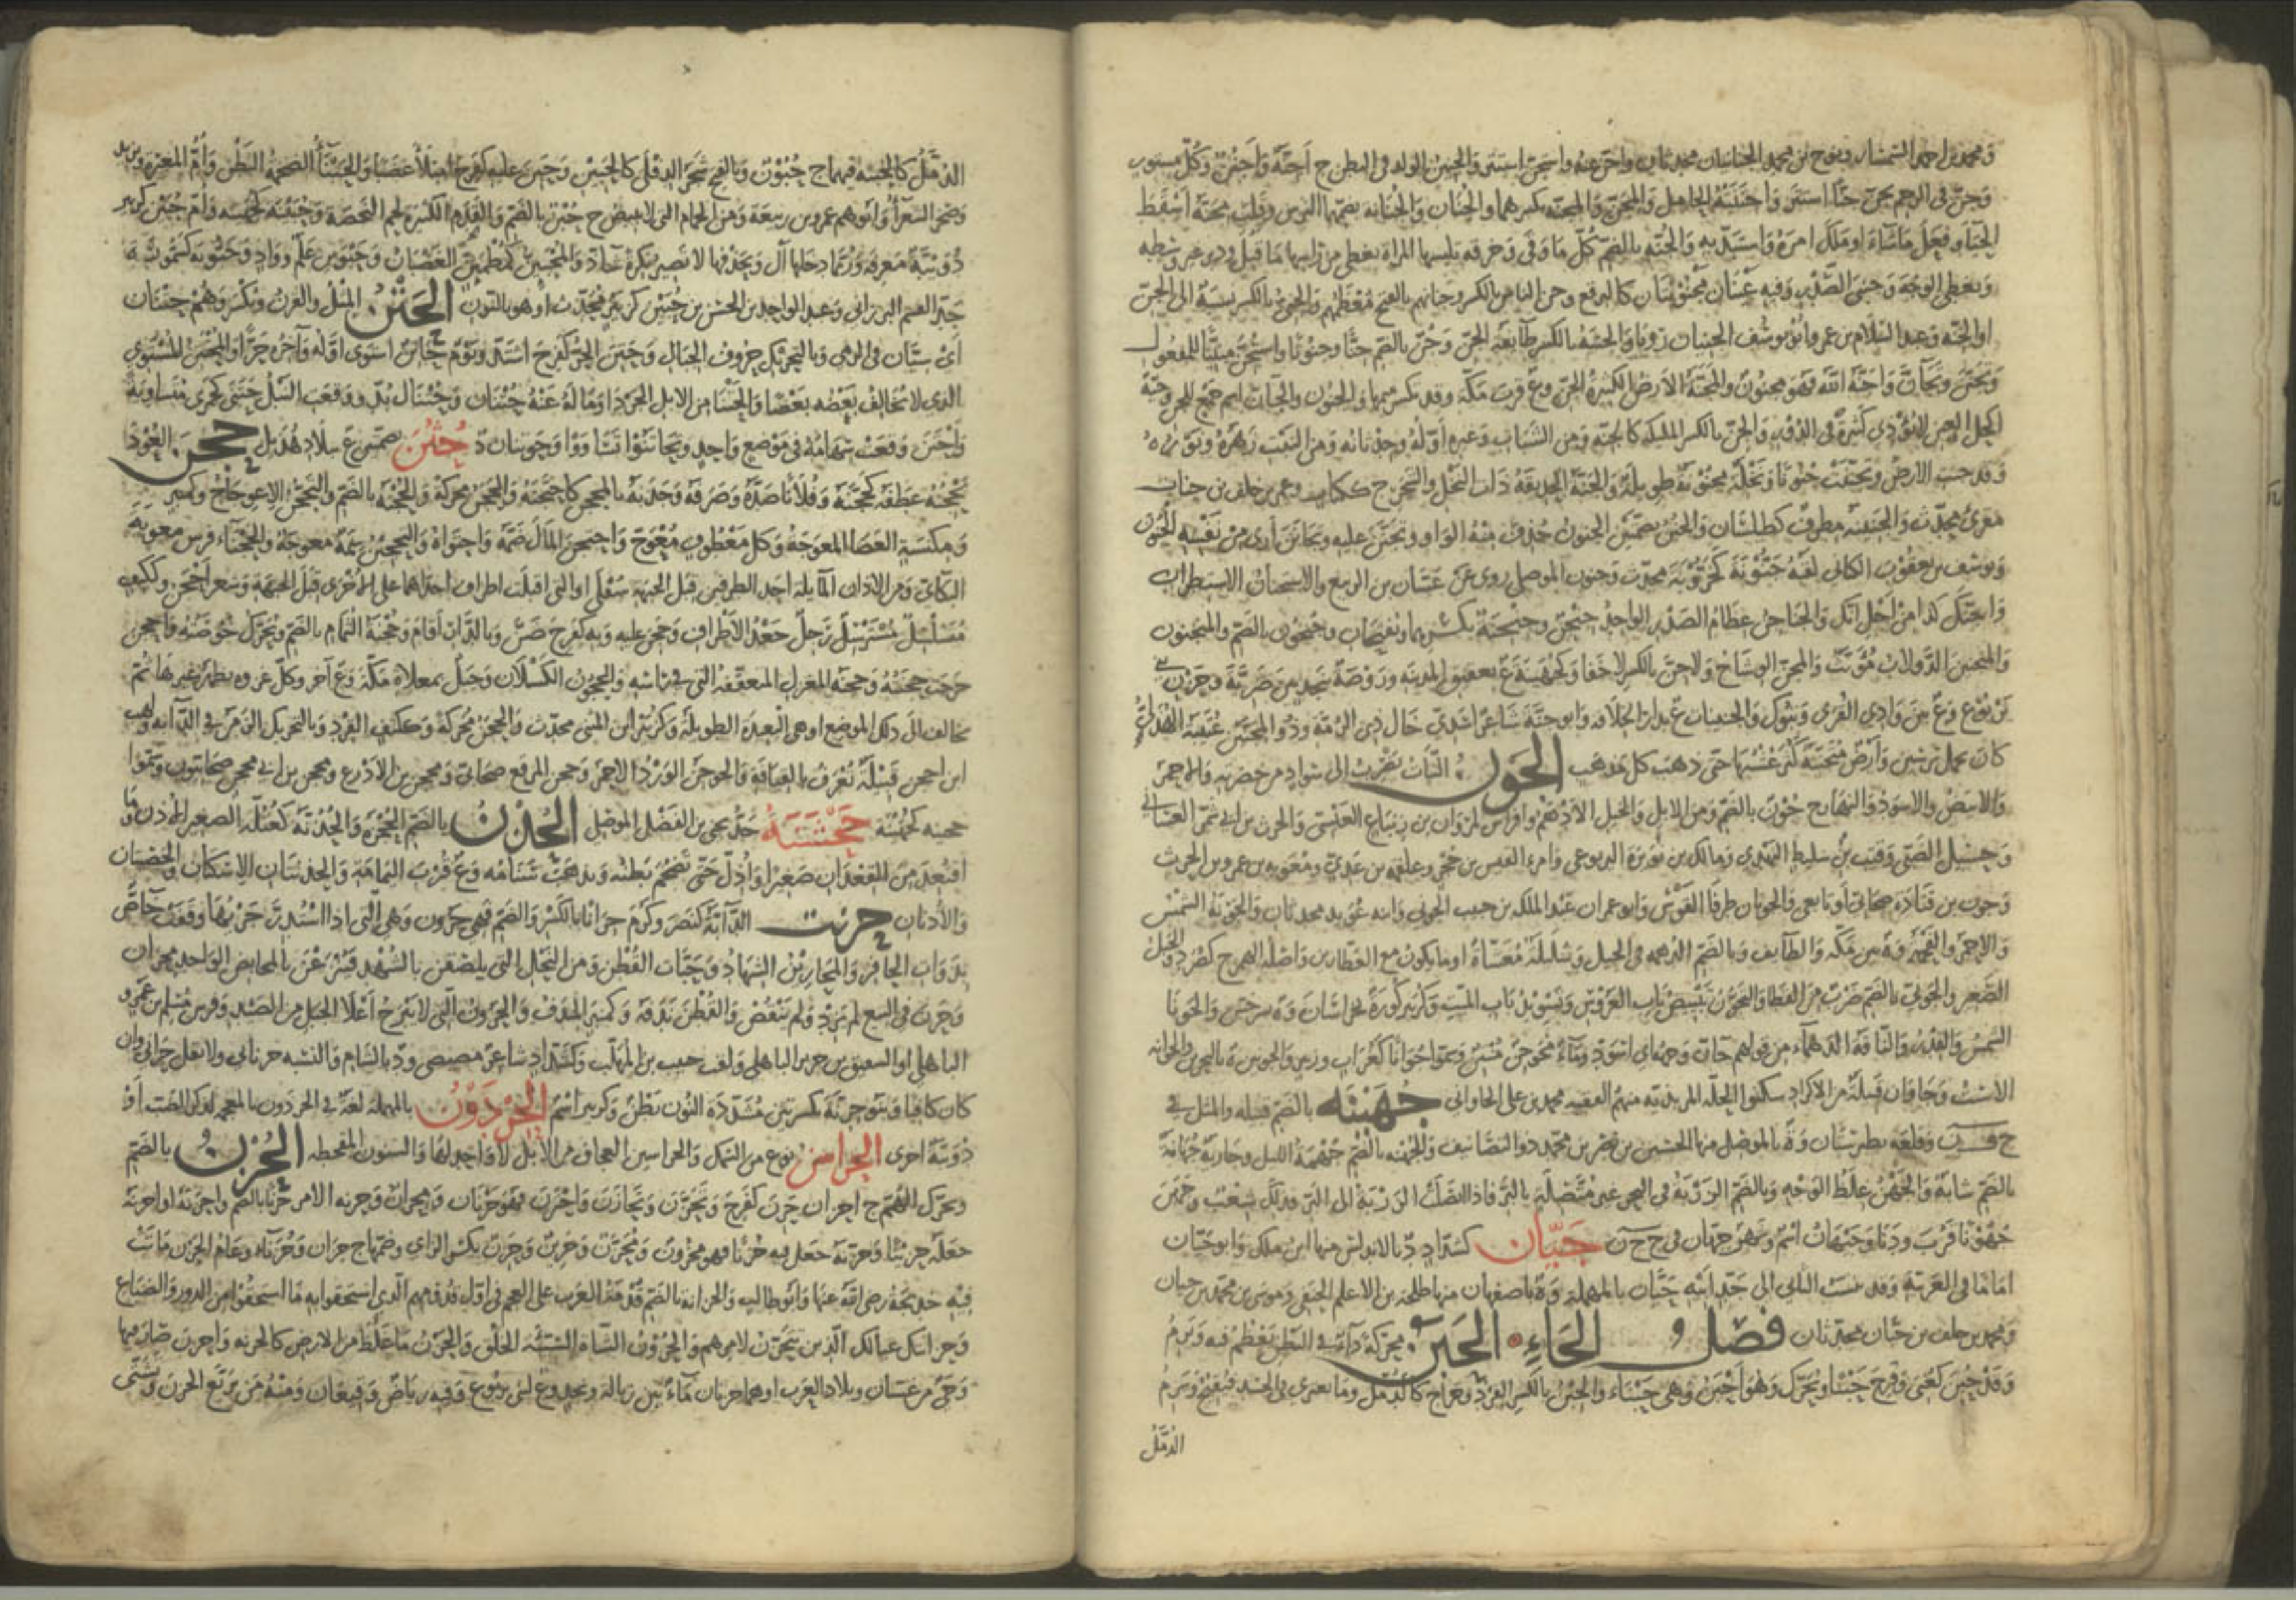 ومحمد بن احمد السمسار ونوح بن محمد الجنانيان محدثان واجن عنه واستجن استتر والجنين الولد فى البطن ج اجنة واجنن وكل مستور
وجن فى الرحم يجن جنا استتر واجنته الحامل والمجن والمجنة بكسرهما والجنان والجنانة بضمهما الترس وقلب مجنه اسقط
الحياء وفعل ما شاء او ملك امره واستبد به والجنة بالضم كل ما وقى وخرقة تلبسها المراة تغطى من راسها ما قبل ودبر غير وسطه
وتغطى الوجه وجنبى الصدر وفيه عينان مجوبتان كالبرقع وجن الناس بالكسر وجنانهم بالفتح معظمهم والجنى بالكسر نسبة الى الجن
او الجنة وعبد السلام بن عمر وابو يوسف الجنيان رويا والجنة بالكسر طائفة الجن وجن بالضم جنا وجنونا واستجن مبنيا للمفعول
وتجنن وتجان واجنه الله فهو مجنون والمجنة الارض الكثيرة الجن وع قرب مكة وقد تكسر ميمها والجنون والجان اسم جمع للجن وحية
اكحل العين لا تؤذى كثيرة فى الدور والجن بالكسر الملئكة كالجنة ومن الشباب وغيره اوله وحدثانه ومن النبت زهره ونوره
وقد جنت الارض وتجننت جنونا ونخلة مجنونة طويلة والجنة الحديقة ذات النخل والشجر ج ككتاب وعمر بن خلف بن جنان
مقرئ محدث والجنينة مطرف كطيلسان والجنن بضمتين الجنون حذف منه الواو وتجنن عليه وتجانن ارى من نفسه الجنون
ويوسف بن يعقوب الكنانى لقبه جنونة كخروبة محدث وجنون الموصلى روى عن غسان بن الربيع والاستجنان الاستطراب
واجنك كذا من اجل انك والجناجن عظام الصدر الواحد جنجن وجنجنة بكسرهما ويفتحان وجنجون بالضم والمنجنون
والمنجنين الدولاب مؤنث والمجن الوشاح ولا جن بالكسر لا خفاء وكجهينة ع بعقيق المدينة وروضة بنجد بين ضرية وحزن بنى
يربوع وع بين وادى القرى وتبوك والجنينات ع بدار الخلافة وابو جنة شاعر اسدى خال ذى الرمة وذو المجنين عتيبة الهذلى
كان يحمل ترسين وارض متجننة كثر عشبها حتى ذهب كل مذهب الجون النبات يضرب الى سواد من خضرته والاحمر
والابيض والاسود والنهار ج جون بالضم ومن الابل والخيل الادهم وافراس لمروان بن زنباع العبسى والحرث بن ابى شمر الغسانى
وحسيل الضبى وقتب بن سليط النهدى ومالك بن نويرة اليربوعى وامرئ القيس بن حجر وعلقمة بن عدى ومعوية بن عمرو بن الحرث
وجون بن قتادة صحابى او تابعى والجونان طرفا القوس وابو عمران عبد الملك بن حبيب الجونى وابنه عويد محدثان والجونة الشمس
والاحمر والفحمة وة بين مكة والطائف وبالضم الدهمة فى الخيل وسليلة مغشاة ادما يكون مع العطارين واصله الهمز ج كصرد والجبل
الصغير والجونى بالضم ضرب من القطا والتجون تبييض باب العروس وتسويد باب الميت وكزبير كورة بخراسان وة بسرخس والجونا
الشمس والقدر والناقة الدهماء من قولهم جان وجهه اى اسود وماء مجوجن منتن وسموا جوانا كغراب وزبير والجونين ة بالبحرين والجوانة
الاست وجاوان قبيلة من الاكراد سكنوا الحلة المزيدية منهم الفقيه محمد بن على الجاوانى جهينه بالضم قبيلة والمثل فى
ج ف ن وقلعة بطبرستان وة بالموصل منها الحسين بن نصر بن محمد ذو التصانيف والجهنة بالضم جهمة الليل وجارية جهانة
بالضم شابة والجهن غلظ الوجه وبالضم الزربة فى البحر غير متصلة بالبر فاذا اتصلت الزربة الى البر فذلك شعب وجهن
جهونا قرب ودنا وجيهان اسم ونهر جيهان فى ج ح ن جيان كشداد د بالاندلس منها ابن ملك وابو حيان
اماما فى العربية وقد نسب الثانى الى جد ابيه حيان بالمهملة وة باصفهان منها طلحة بن الاعلم الحنفى وموسى بن محمد بن جيان
ومحمد بن خلف بن جيان محدثان فصل الحاء الحبن محركة داء فى البطن يعظم منه ويرم
وقد حبن كعنى وفرح حبنا ويحرك وهو احبن وهى حبناء والحبن بالكسر القرد وخراج كالدمل وما يعترى فى الجسد فيقيح ويرم
الدمل
الدمل كالحبنة فيهما ج حبون وبالفتح شجر الدفلى كالحبين وحبن عليه كفرح امتلأ غضبا والحبناء الضخمة البطن وام المغيرة ويزيد
وصخر الشعراء وابوهم عمرو بن ربيعة ومن الحمام التى لا تبيض ج حبن بالضم والقدم الكثيرة لحم البخصة وحبينة كجهينة وام حبين كزبير
دويبة معرفة وربما دخلها ال وبحذفها لا تصير نكرة شاذ والمحبئن كمطمئن الغضبان وحبنون علم وواد وحبونة كسمونة
جد القسم البرزالى وعبد الواحد بن الحسن بن حبين كزبير محدث او هو بالنون الحتن المثل والقرن ويكسر وهم حتنان
اى سيان فى الرمى وبالتحريك حروف الجبال وحتن الحر كفرح اشتد ويوم حاتن استوى اوله وآخره حرا والمحتتن المستوى
الذى لا يخالف بعضه بعضا والحتنا من الابل الحرذا وما له عنه حتنان وحتنال بد ووقعت النبل حتنى كجمزى متساوية
واحتن وقعت سهامه فى موضع واحد وتحاتنوا تساووا وحوتنان د حثن بضمتين ع ببلاد هذيل حجن العود
يحجنه عطفه كحجنه وفلانا صده وصرفه وجذبه بالمحجن كاحتجنه والحجن محركة والحجنة بالضم والتحجن الاعوجاج وكمنبر
ومكنسة العصا المعوجة وكل معطوف معوج واحتجن المال ضمه واحتواه والتحجين سمة معوجة والحجناء فرس معوية
البكائى ومن الاذان المائلة احد الطرفين قبل الجبهة سفلا او التى اقبلت اطراف احداهما على الاخرى قبل الجبهة وشعر احجن وككتف
متسلسل مسترسل رجل جعد الاطراف وحجن عليه وبه كفرح ضن وبالدار اقام وحجنة الثمام بالضم ويحرك خوصته واحجن
خرجت حجنته وحجنة المغزل المنعقفة التى فى راسه والحجون الكسلان وجبل بمعلاة مكة وع آخر وكل غزوة يظهر غيرها ثم
يخالف الى ذلك الموضع او هى البعيدة الطويلة وكزبير ابن المثنى محدث والحجن محركة وككتف القرد وبالتحريك الزمن فى الدابة ولهب
ابن احجن قبيلة تعرف بالعيافة والحوجن الورد الاحمر وحجن المرقع صحابى ومحجن بن الادرع ومحجن بن ابى محجن صحابيون وسموا
حجينة كجهينة حجشنة جد يحيى بن الفضل الموصلى الحذن بالضم الحجزة والحذنة كعتلة الصغير الاذن وما
اقتعد من القعدان صغيرا واذل حتى تضخم بطنه ويذهب سنامه وع قرب اليمامة والحذنتان الاسكتان والخصيتان
والاذنان حرنت الدابة كنصر وكرم حرانا بالكسر والضم فهى حرون وهى التى اذا استدر جريها وقفت خاص
بذوات الحافر والمحارين الشهاد وحبات القطن ومن النحل التى يلصقن بالشهد فينزعن بالمحابض الواحد محران
وحرن فى البيع لم يزد ولم ينقص والقطن ندفه وكمنبر المندف والحرون التى لا تبرح اعلا الجبل من الصيد وفرس مسلم بن عمرو
الباهلى او لشقيق بن جرير الباهلى ولقب حبيب بن المهلب وكشداد شاعر مصيصى ود بالشام والنسبة حرنانى ولا تقل حرانى وان
كان قياسا وبنو حرنة بكسرتين مشددة النون بطن وكزبير اسم الحردون بالمهملة لغة فى الحرذون بالمعجمة لذكر الضب او
دويبة اخرى الحراسن نوع من السمك والحراسين العجاف من الابل لا واحد لها والسنون المقحطة الحزن بالضم
ويحرك الهم ج احزان حزن كفرح وتحزن وتحازن واحتزن فهو حزنان ومحزان وحزنه الامر حزنا بالضم واحزنه او احزنه
جعله حزينا وحزنه جعل فيه حزنا فهو محزون ومحزن وحزين وحزن بكسر الزاى وضمها ج حزان وحزناء وعام الحزن ماتت
فيه خديجة رضى الله عنها وابو طالب والحزانة بالضم قدمة العرب على العجم فى اول قدومهم الذى استحقوا به ما استحقوا من الدور والضياع
وحزانتك عيالك الذين تتحزن لامرهم والحزون الشاة السيئة الخلق والحزن ما غلظ من الارض كالحزنة واحزن صار فيها
وحى من غسان وبلاد العرب او هما حزنان ماء بين زبالة ونجد وع لبنى يربوع وفيه رياض وقيعان ومنه من تربع الحزن وتشتى